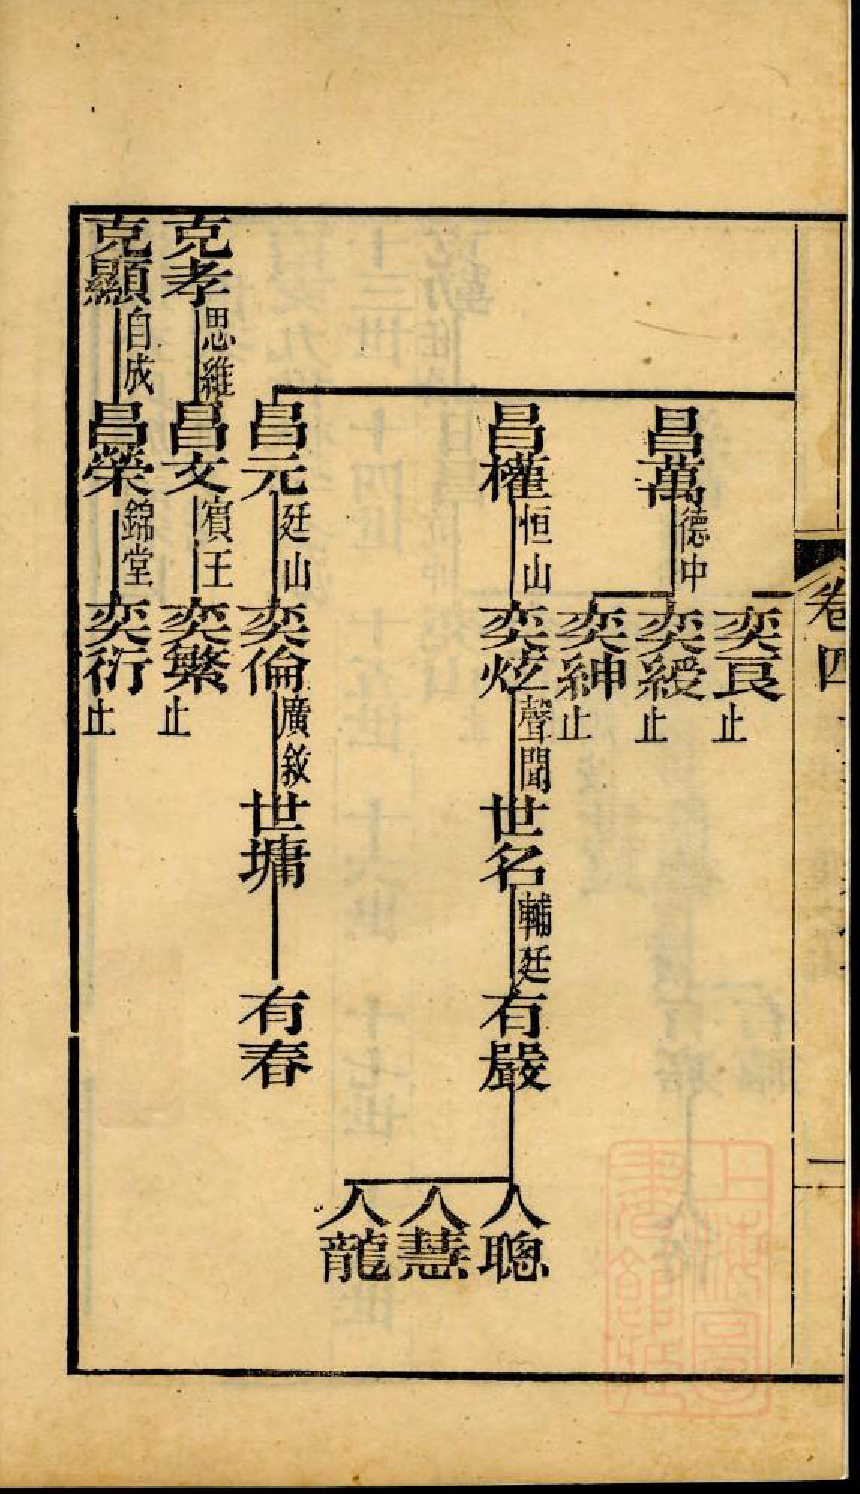 卷四
奕良止
昌萬德中
奕綬止
奕紳止
昌權恒山奕炫聲聞世名輔廷有嚴人聰
人慧
人龍
昌元廷山奕倫廣敘世墉有春
克孝思維昌文賓王奕繁止
克顯自成昌榮錦堂奕衍止
上海圖
書館藏